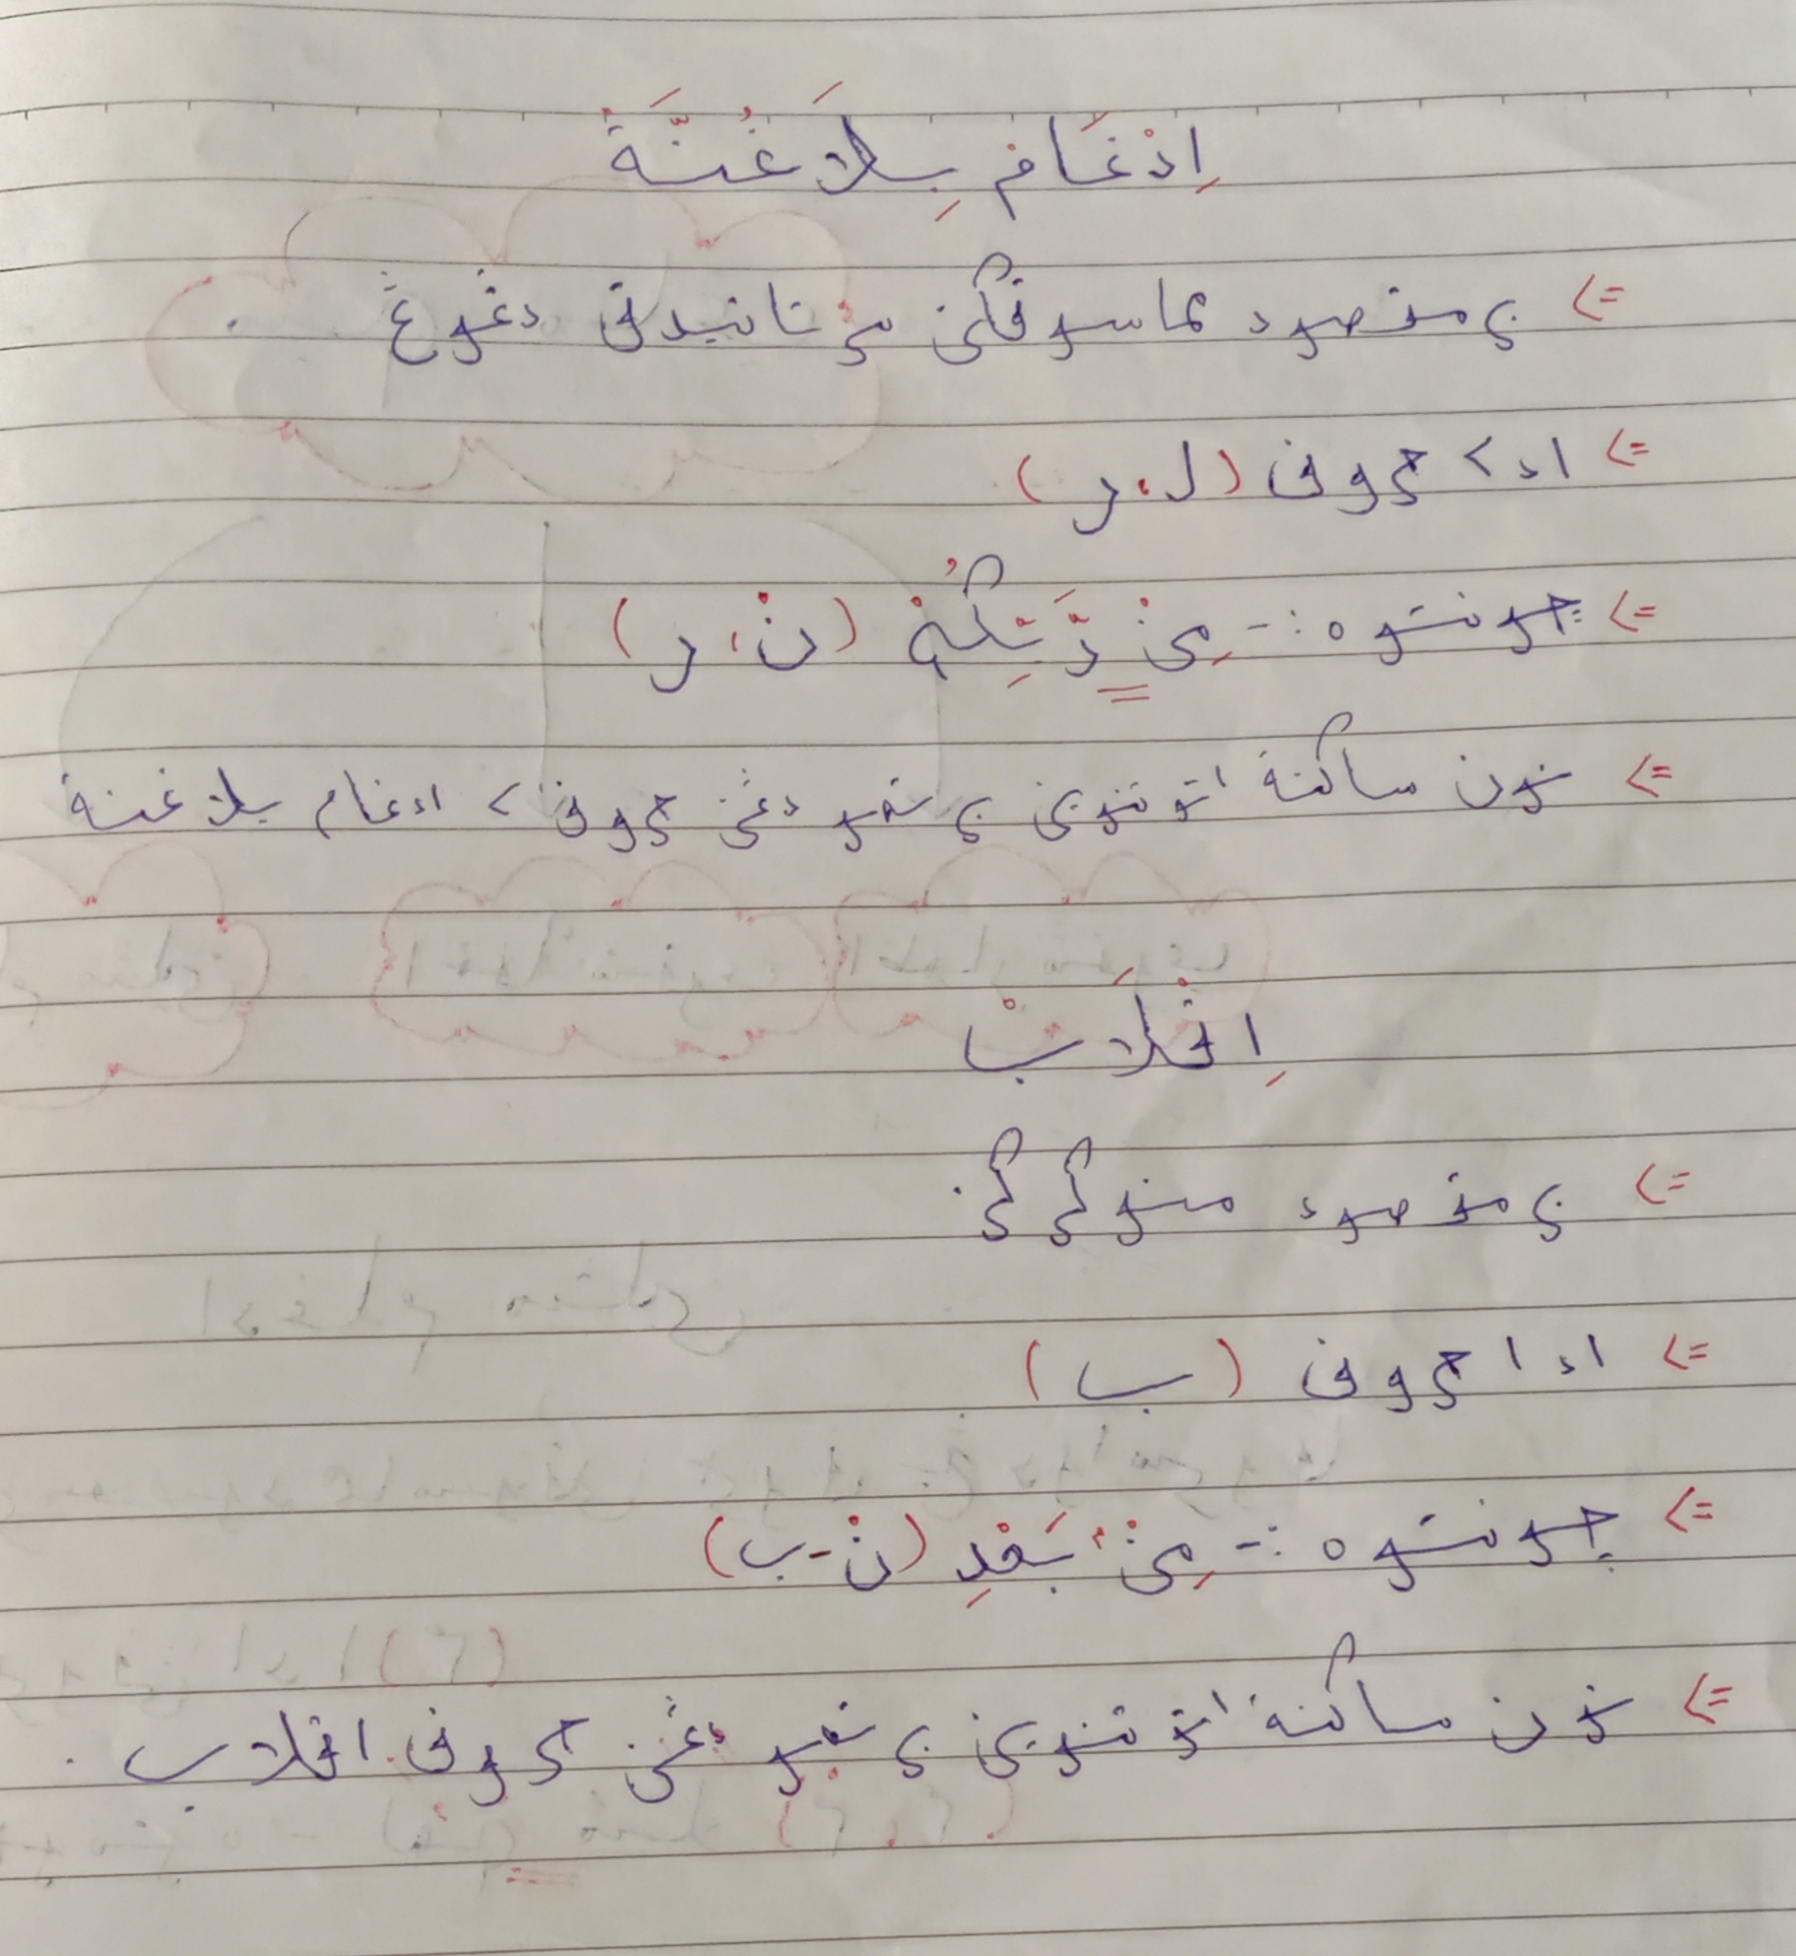 اِدْغَام بِلَا غُنَّةْ
=> برمقصود مماسوقكن سرتا تيدق دڠوڠ.
=> اد ٢ حروف (ل، ر)
=> چونتوه :- مِنْ رَّبِّكُمْ (نْ، ر)
=> نون ساكنة اتو تنوين برتمو دڠن حروف٢ ادغام بلا غنة
اِقْلَابْ
=> برمقصود منوكركن.
=> اد ١ حروف (ب)
=> چونتوه :- مِنْ بَعْدِ (نْ-ب)
=> نون ساكنة اتو تنوين برتمو دڠن حروف اقلاب.